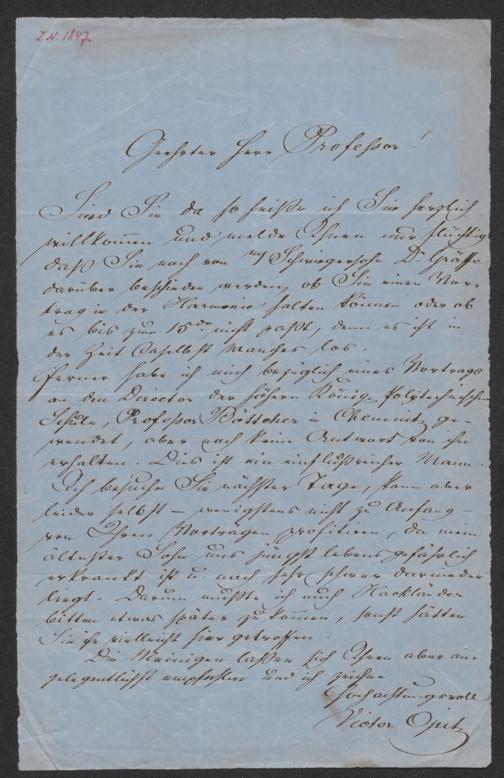 I.N. 1847
Geehrter Herr Professor!
Sind Sie da so heiße ich Sie herzlich
willkommen und melde Ihnen nur flüchtig
daß Sie noch von Schwagersohn Dr Gräffe
darüber beschieden werden, ob Sie einen Vor-
trag in der Harmonie halten können oder ob
es bis zum 15ten nicht paßt, denn es ist in
der Zeit daselbst Manches los.
Ferner habe ich mich bezüglich eines Vortrags
an den Director der höhern Königl. Polytechnischen
Schule, Professor Böttcher in Chemnitz ge-
wendet, aber noch keine Antwort von ihm
erhalten. Dies ist ein einflußreicher Mann.
Ich besuche Sie nächster Tage, kann aber
leider selbst – wenigstens nicht zu Anfang –
von Ihren Vorträgen profitiren, da mein
ältester Sohn uns jüngst lebensgefährlich
erkrankt ist u. noch sehr schwer darnieder
liegt. Darum mußte ich auch Hackländer
bitten etwas später zu kommen, sonst hätten
Sie ihn vielleicht hier getroffen.
Die Meinigen laßen sich Ihnen aber an-
gelegentlichst empfehlen und ich zeichne
Hochachtungsvoll
Victor Opitz